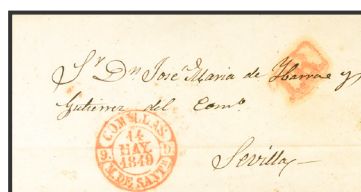 Sr Dn José Maria de Ybarra y
Gutierrez del Comº
Sevilla
COMILLAS
14
MAY.
1849
M. DE SANTR